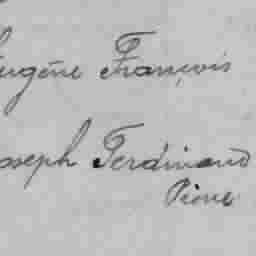 Eugène François
Joseph Ferdinand